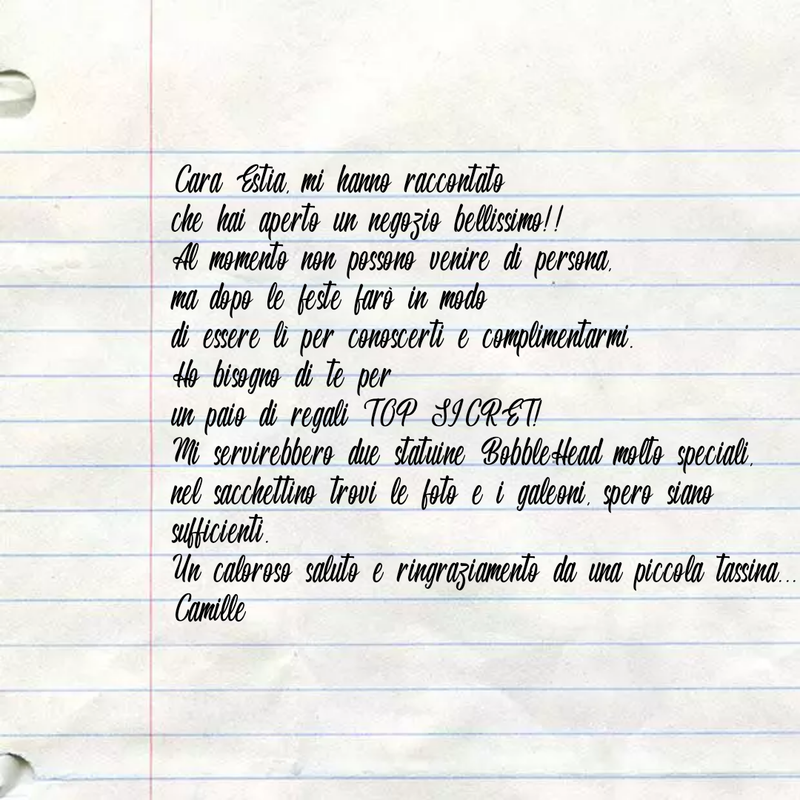 Cara Estia, mi hanno raccontato
che hai aperto un negozio bellissimo!!
Al momento non possono venire di persona,
ma dopo le feste farò in modo
di essere lì per conoscerti e complimentarmi.
Ho bisogno di te per
un paio di regali TOP SICRET!
Mi servirebbero due statuine BobbleHead molto speciali,
nel sacchettino trovi le foto e i galeoni, spero siano
sufficienti.
Un caloroso saluto e ringraziamento da una piccola tassina...
Camille